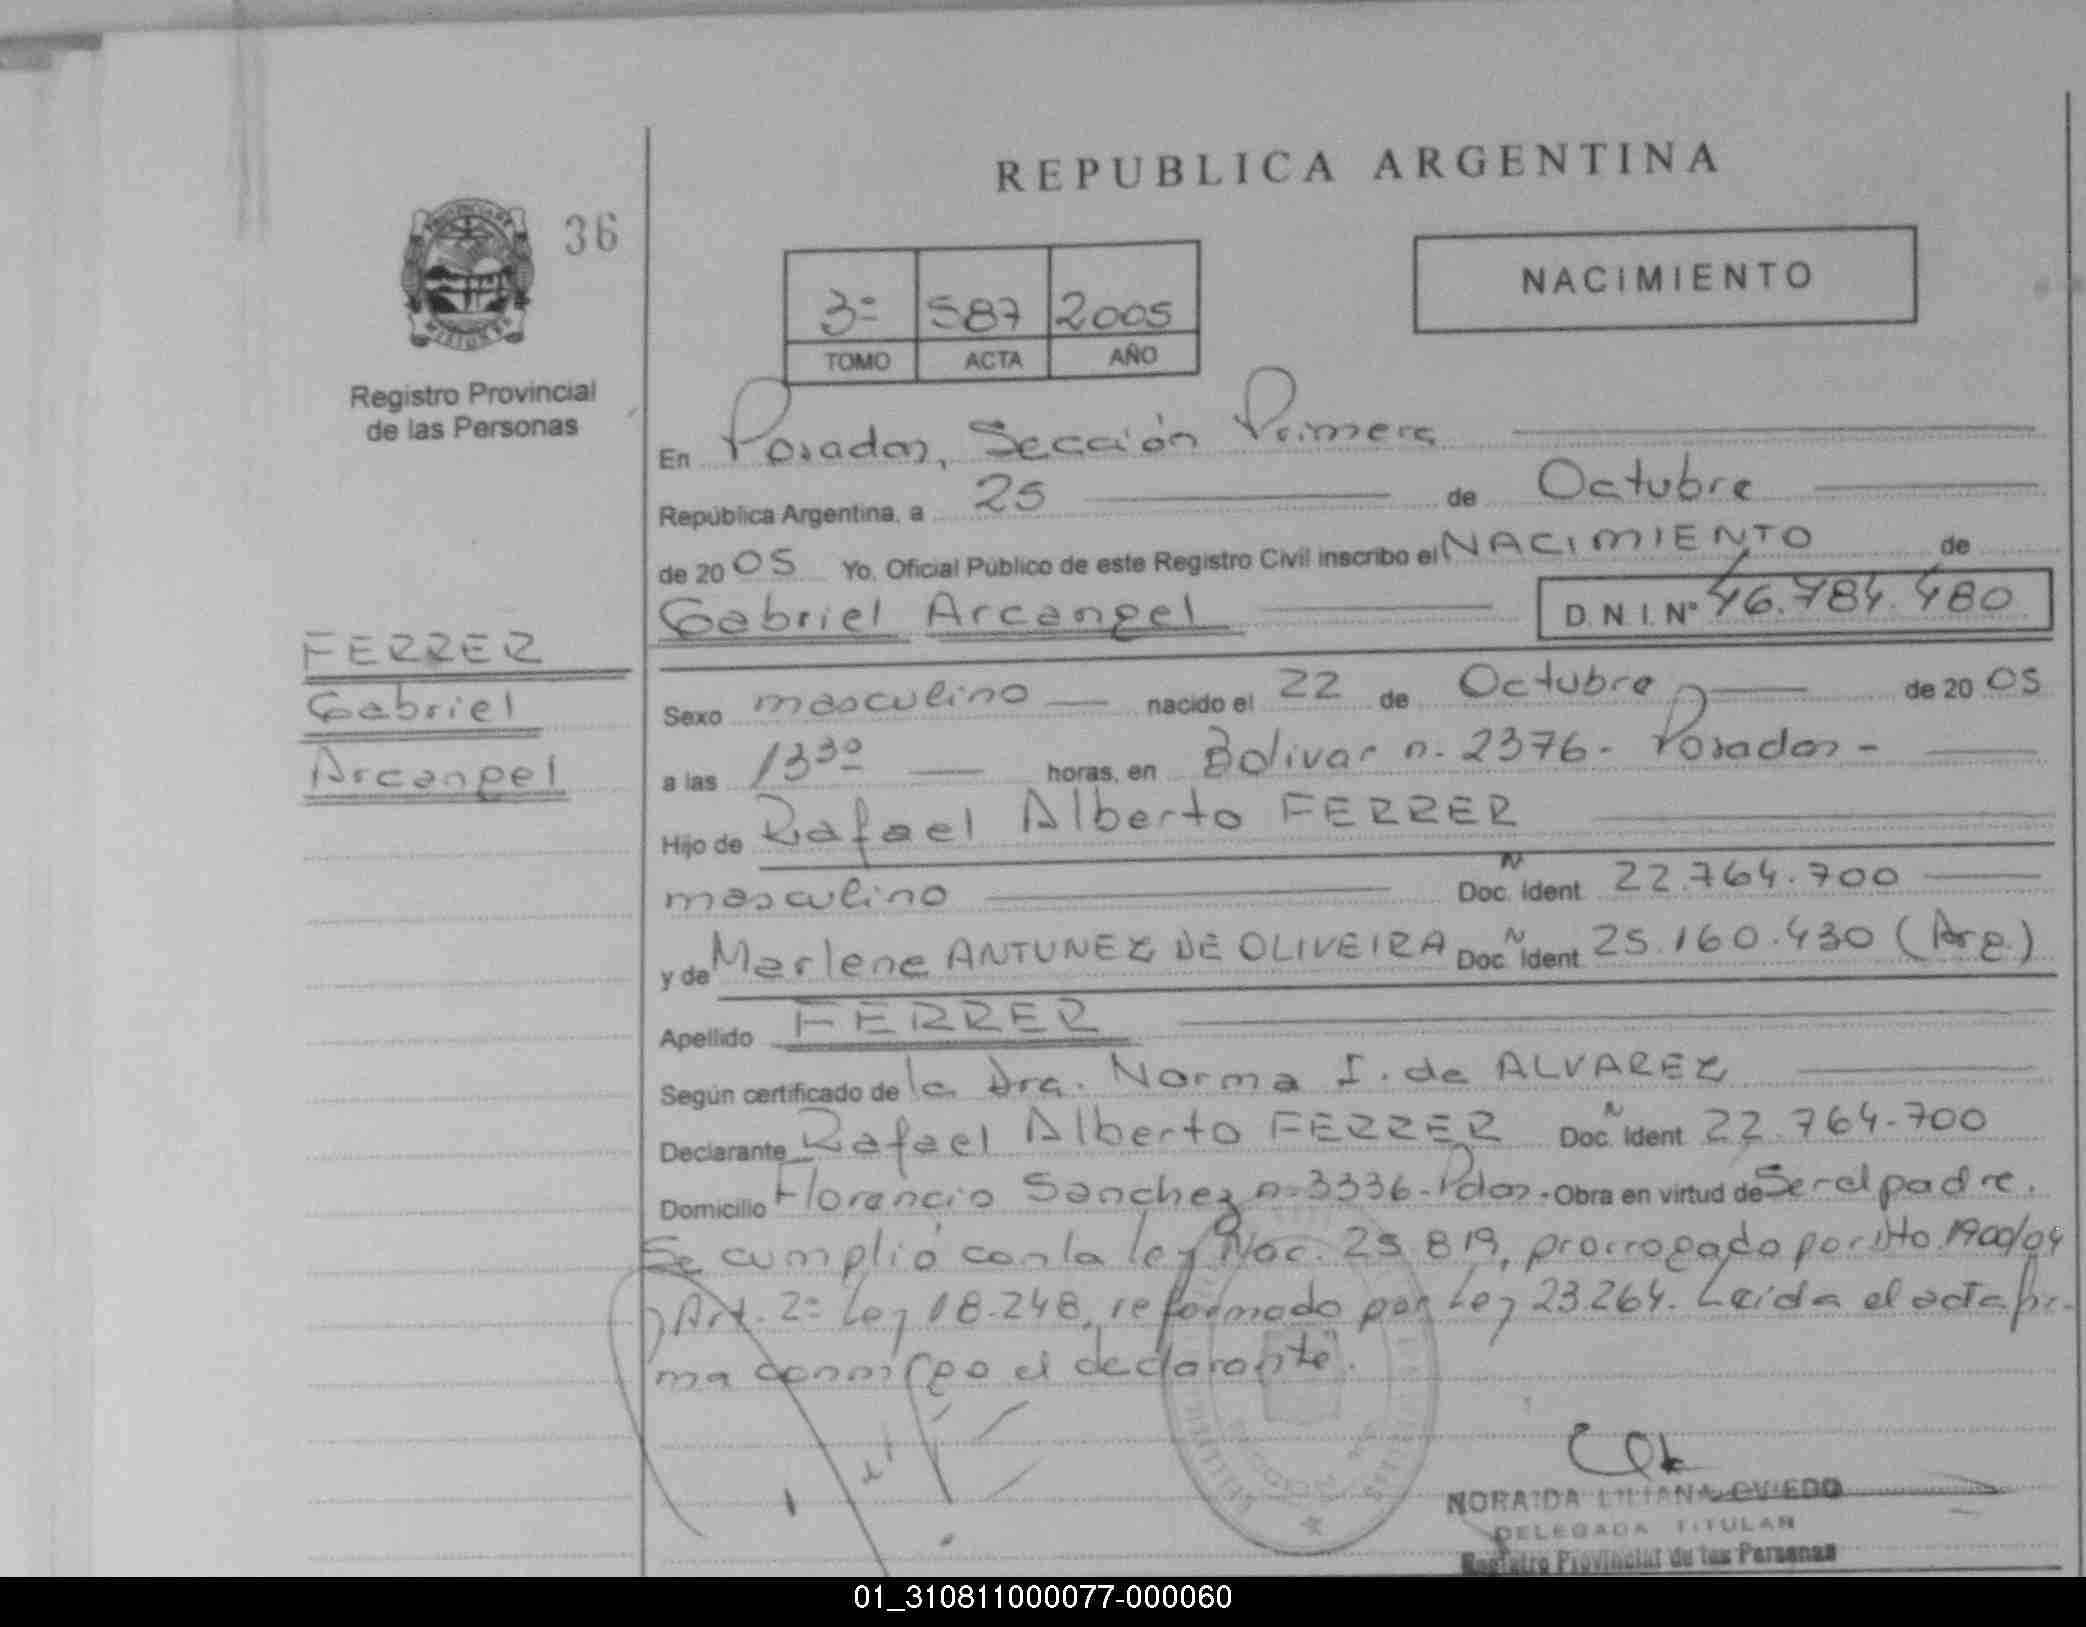 REPUBLICA ARGENTINA
36
NACIMIENTO
3º 587 2005
TOMO ACTA AÑO
Registro Provincial
de las Personas
En Posadas, Sección Primera
República Argentina, a 25 de Octubre
de 2005 Yo, Oficial Público de este Registro Civil inscribo el NACIMIENTO de
Gabriel Arcangel D.N.I. Nº 46.784.480
FERRER
Gabriel
Arcangel
Sexo masculino nacido el 22 de Octubre de 2005
a las 13³⁰ horas, en Bolivar n. 2376 - Posadas -
Hijo de Rafael Alberto FERRER
masculino Doc. Ident N 22.764.700
y de Marlene ANTUNEZ DE OLIVEIRA Doc. Ident N 25.160.430 (Arg.)
Apellido FERRER
Según certificado de la Dra. Norma I. de ALVAREZ
Declarante Rafael Alberto FERRER Doc. Ident N 22.764.700
Domicilio Florencio Sanchez n. 3336 - Pdas. - Obra en virtud de Ser el padre.
Se cumplió con la ley Nac. 25.819, prorrogado por Dto. 1900/04
y Art. 2º Ley 18.248, reformado por Ley 23.264. Leída el acta fir-
ma conmigo el declarante.
NORAIDA LILIANA OVIEDO
DELEGADA TITULAR
Registro Provincial de las Personas
01_310811000077-000060